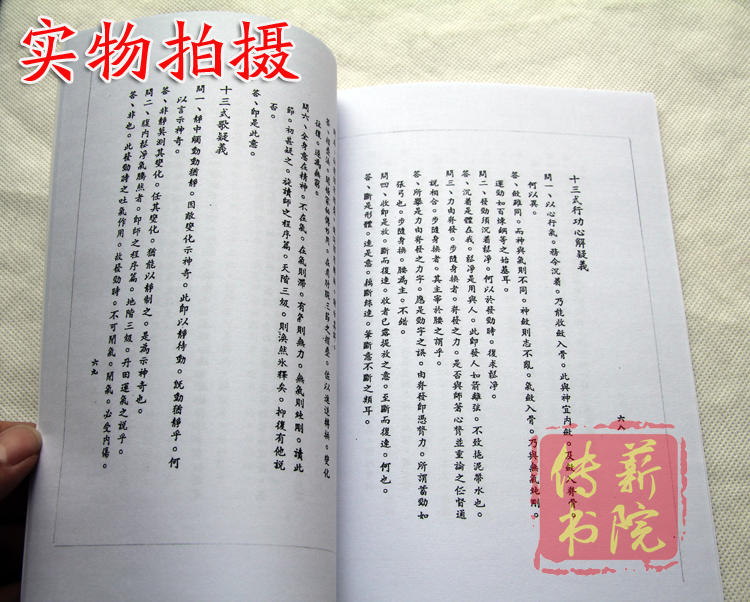 实物拍摄
十三式行功心解疑義
問一、以心行氣。務令沉着。乃能收斂入骨。此與神宜內斂。及斂入脊骨。
何以異。
答、斂雖同。而神與氣則不同。神斂則志不亂。氣斂入骨。乃與無氣純剛。
運勁如百煉鋼等之始基耳。
問二、發勁須沉着鬆淨。何以於發勁時。復求鬆淨。
答、沉着是體在我。鬆淨是用與人。此即發人如箭離弦。不致拖泥帶水也。
問三、力由脊發。步隨身換者。脊發之力。是否與師著心臂並重論之任督通
說相合。步隨身換者。其主宰於腰之謂乎。
答、所舉是力由脊發之力字。應是勁字之誤。由脊發即憑腎力。所謂蓄勁如
張弓也。步隨身換。腰為主。不錯。
問四、收即是放。斷而復連。收者已露提放之意。至斷而復連。何也。
答、斷是形體。連是意。藕斷絲連。筆斷意不斷之類耳。
六八
往復。遂為無窮。
問六、全身意在精神。不在氣。在氣則滯。有氣則無力。無氣則純剛。讀此
節。初甚疑之。旋讀師之程序篇。天階三級。則渙然冰釋矣。抑復有他說
否。
答、即是此意。
十三式歌疑義
問一、靜中觸動動猶靜。因敵變化示神奇。此即以靜待動。既動猶靜乎。何
以言示神奇。
答、非靜莫測其變化。任其變化。猶能以靜制之。是為示神奇也。
問二、腹內鬆淨氣騰然者。即師之程序篇。地階三級。丹田運氣之說乎。
答、非也。此發勁時之吐氣作用。故發勁時。不可閉氣。閉氣。必受內傷。
六九
薪
传
书院